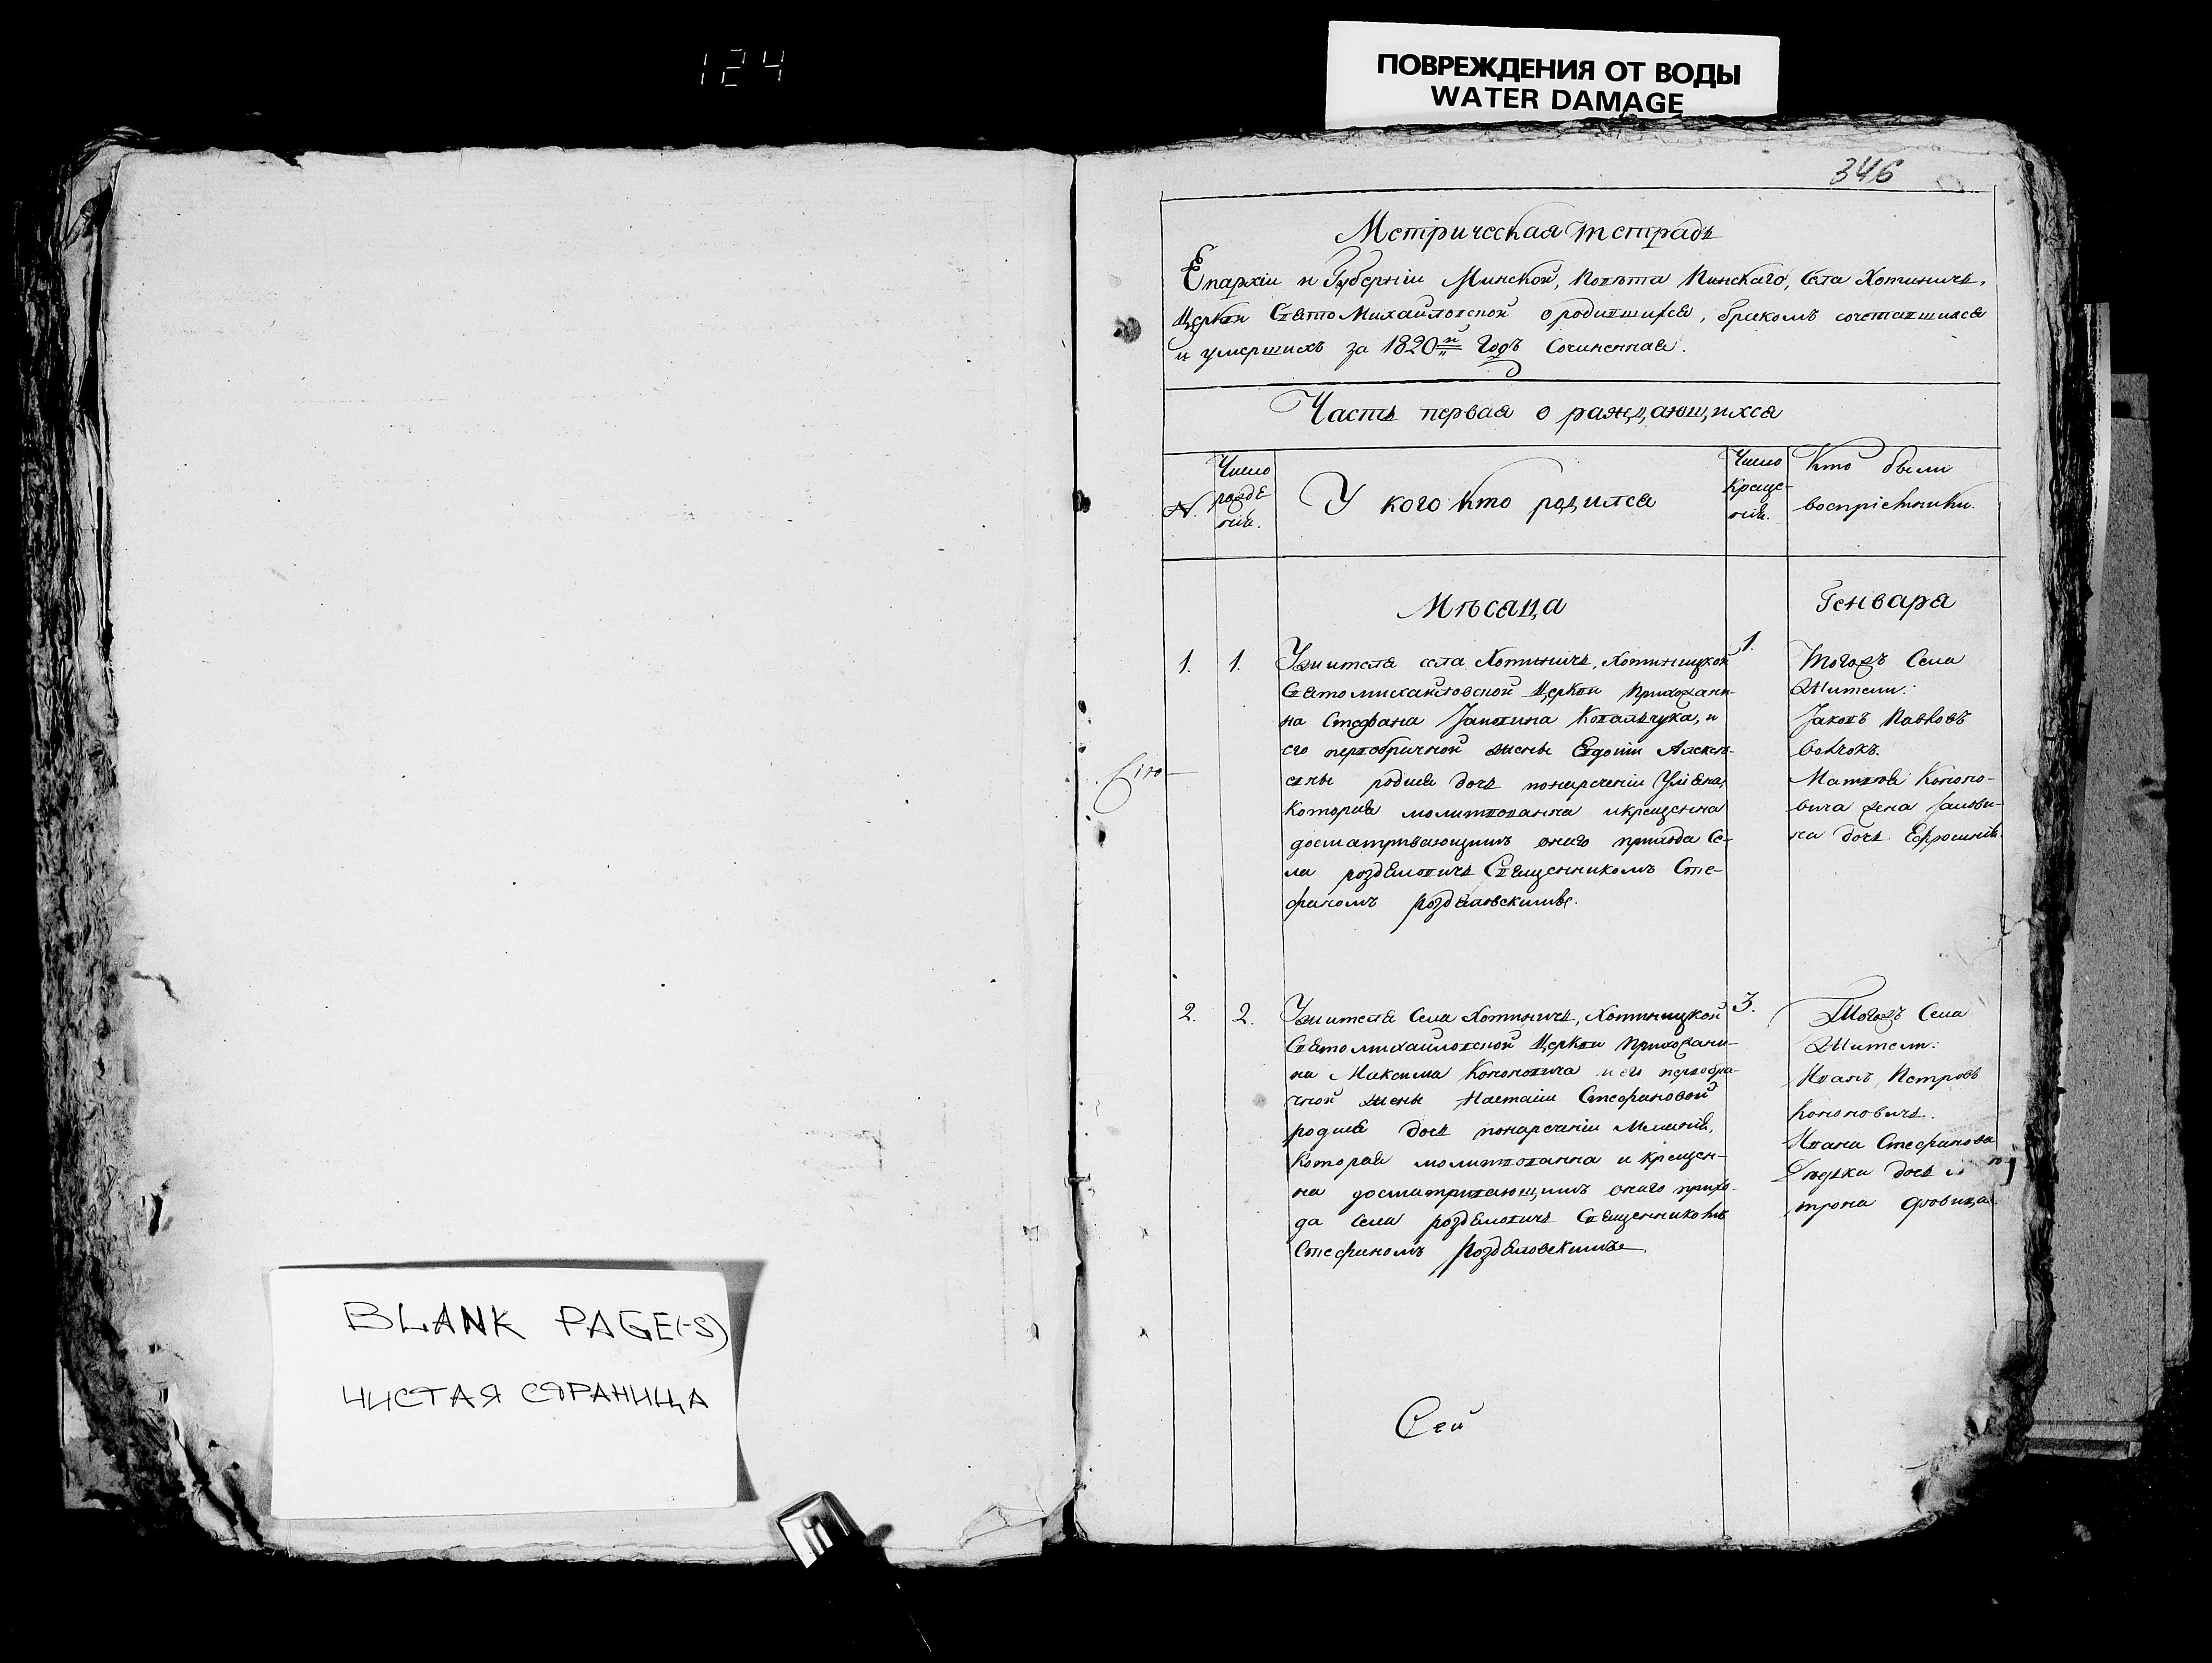 124
ПОВРЕЖДЕНИЯ ОТ ВОДЫ
WATER DAMAGE
346
Метрическая тетрадь
Епархіи и Губерніи Минской, Повѣта Пинскаго, Села Хотиничъ,
Церкви Святомихайловской о родившихся, бракомъ сочетавшихся
и умершихъ за 1820й Годъ Сочиненная.
Часть первая о раждающихся
N.
Число
рожде
нія.
У кого кто родился
Число
Креще-
нія.
Кто были
воспріемники.
Мѣсяца
Генваря
1.
1.
Ужителя села Хотиничъ, Хотиницкой
Святомихайловской Церкви Прихожани-
на Стефана Ковальчука, и
его первобрачной жены Евдокіи Алексѣ-
евны родися дочь понареченіи
которая молитвованна икрещенна
досматривающимъ онаго прихода Се-
ла Священникомъ Сте-
фаномъ
1.
Тогожъ Села
Жители:
Іаковъ Павловъ
Волчокъ.
Матвея Конono-
вича жена
на дочь Ефросинія.
2.
2.
Ужителя Села Хотиничъ, Хотиницкой
Святомихайловской Церкви Прихожани-
на Максима Кононовича и его первобра-
чной жены Настасіи Стефановой
родися дочь понареченіи Меланія,
Которая молитвованна и крещен-
на досматривающимъ онаго прихо-
да Села Священникомъ
Стефаномъ
3.
Тогожъ Села
Жители:
Иванъ Петровъ
Кононовичъ.
Ивана Стефанова
дочь
трона вдовица.
Сей
BLANK PAGE(-S)
ЧИСТАЯ СТРАНИЦА